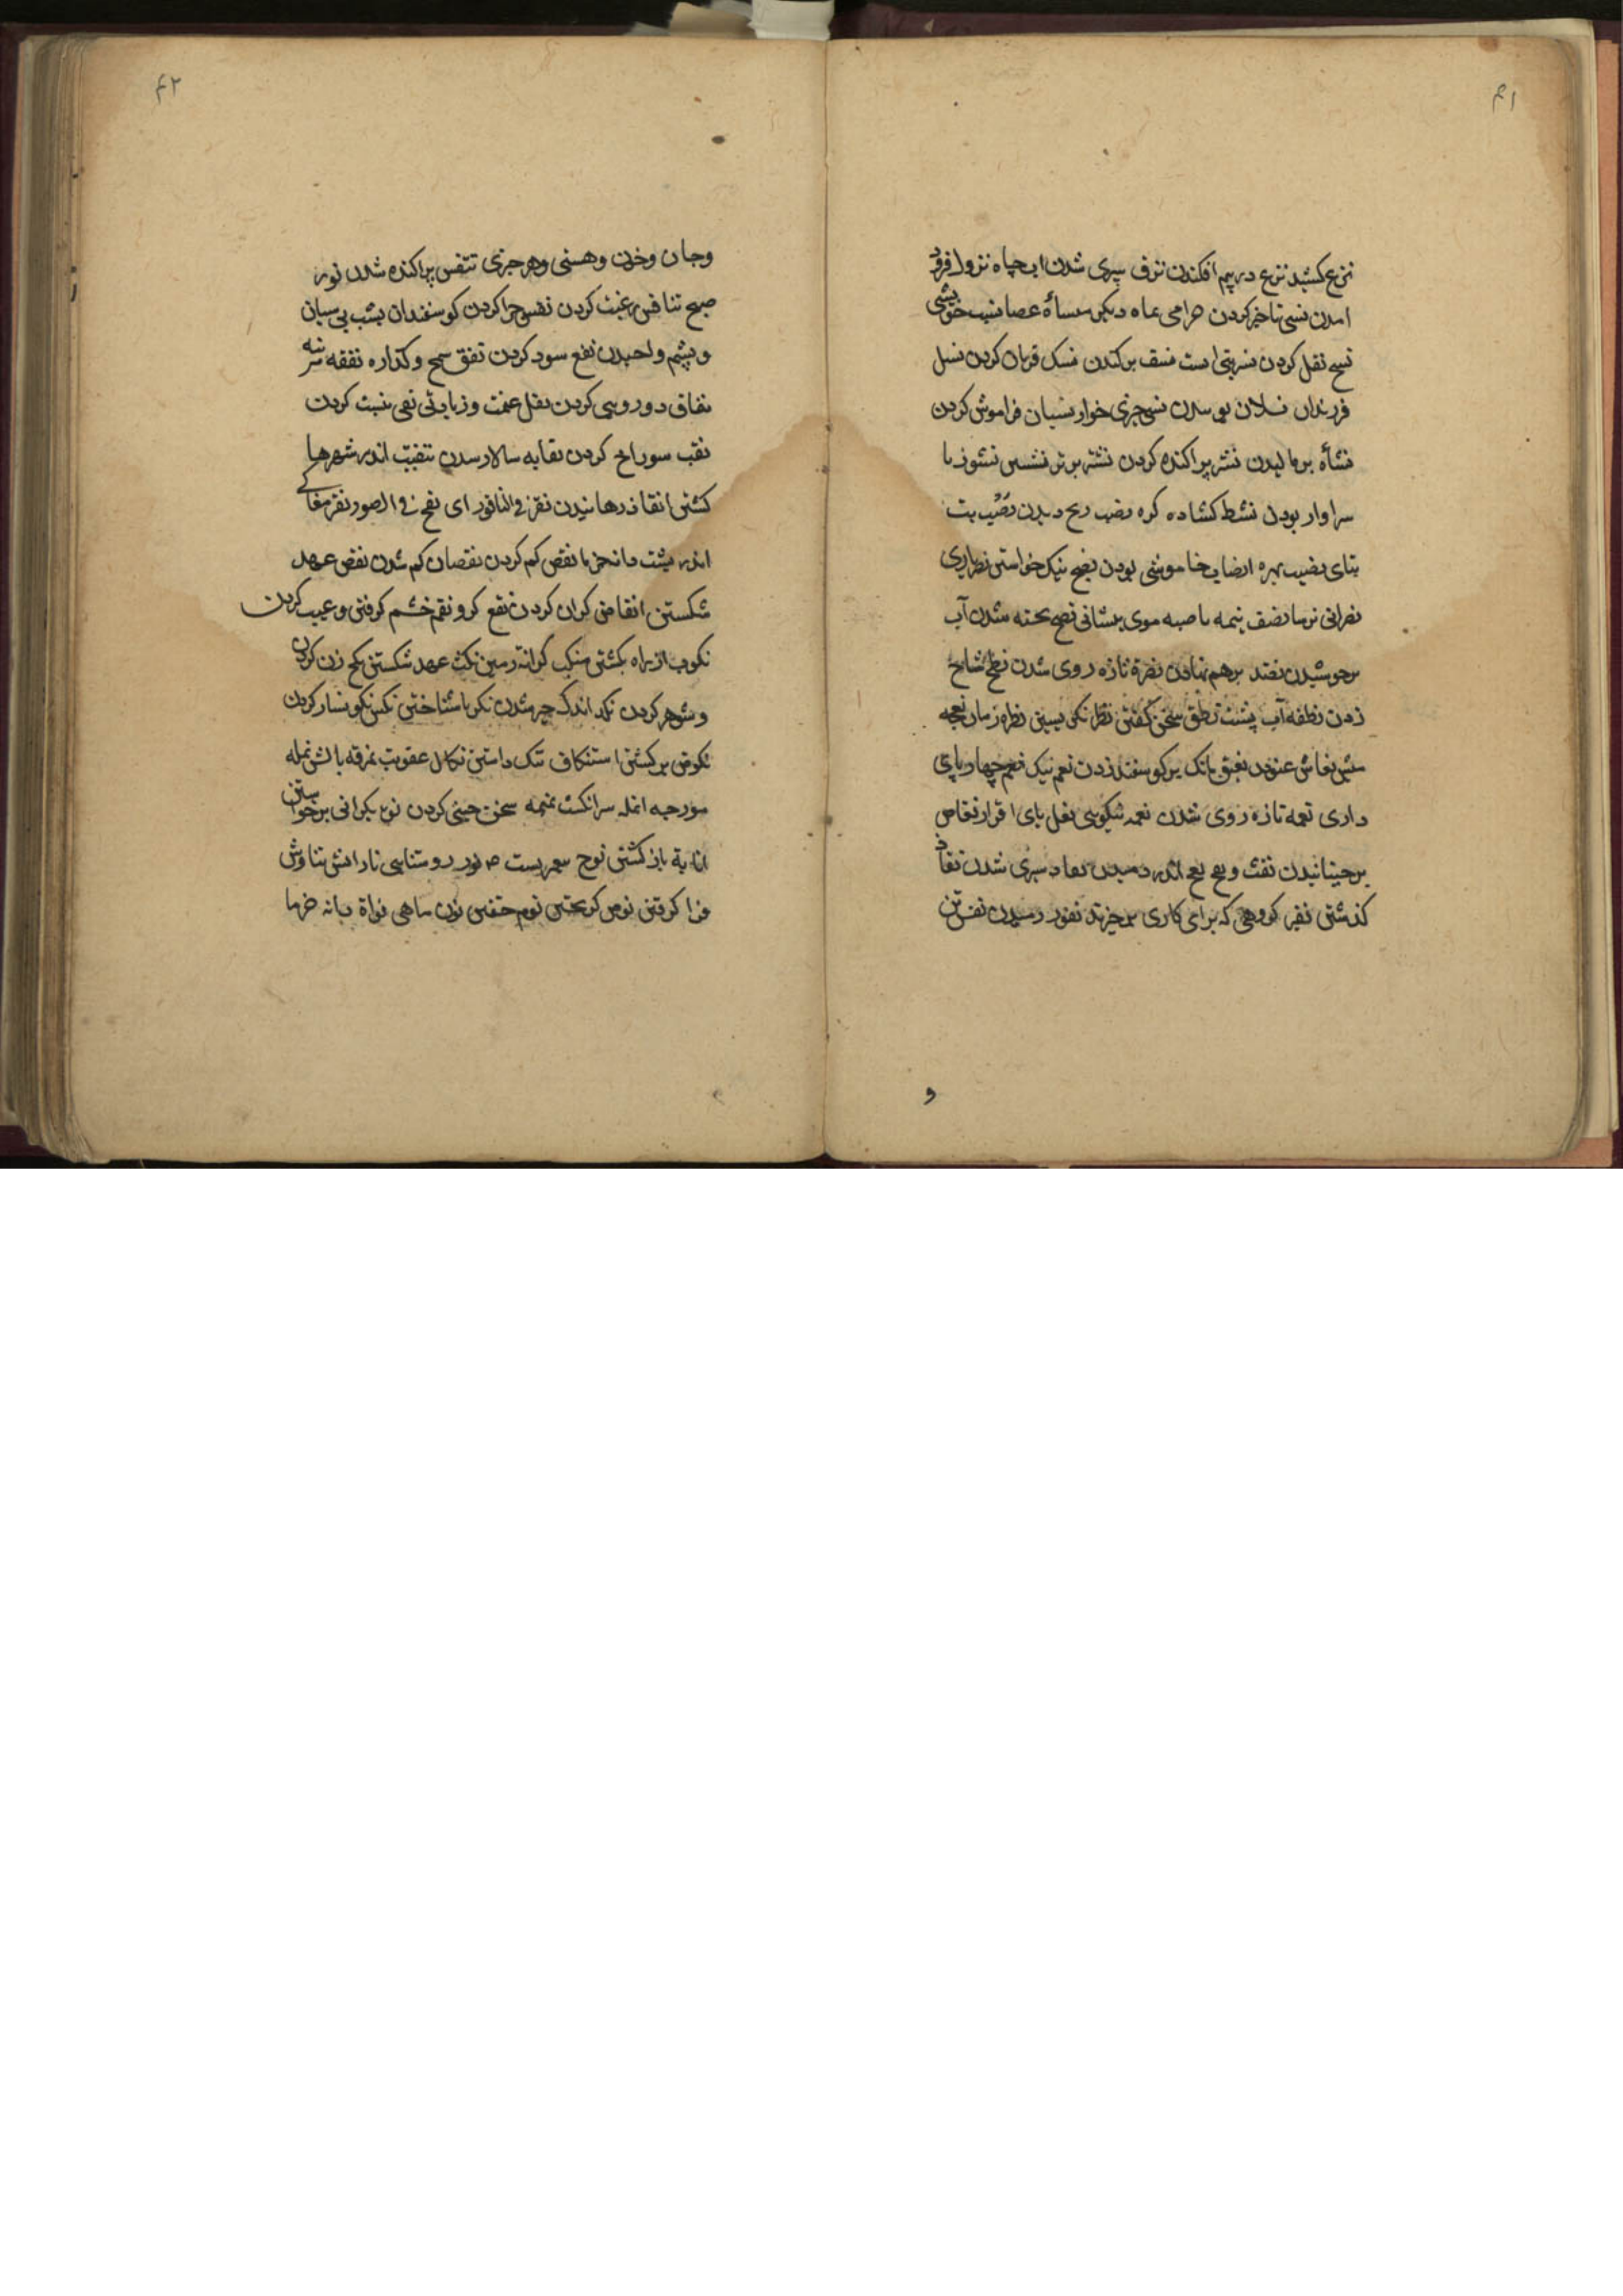 ۴۱
نزع کشید نزع در بیم افکندن نزف سپری شدن اب چاه نزول فرود
امدن نسی تاخیر کردن حرامی بماه دیکر منساة عصا نسب خویشی
نسخ نقل کردن نسر بتی است نسف بر کندن نسک قربان کردن نسل
فرزندان نسلان نسی چیزی خوار نسیان فراموش کردن
نشأة برمالیدن نشر پراکنده کردن نشز برتر نشستن نشوز نا
سزاوار بودن نشط کشادن کره نصب رنج دیدن نصب بت
بتای نصیب بهره انصات خاموشی بودن نصح نیک خواستن نصاری
نصرانی ترسا نصف نیمه ناصیه موی پیشانی نضج پخته شدن آب
برجوشیدن نضد برهم نهادن نضرة تازه روی شدن نطح شاخ
زدن نطفه آب پشت نطق سخن کفتن نظر نکریستن نظره زمان نعجه
میش نعاس غنودن نعق بانک بر کوسفند زدن نعم نیک نعم چهارپای
داری نعمه تازه روی شدن نعمه نیکویی نعل پای افزار نغاض
برجنبانیدن نفث و نفخ اندر دمیدن نفاد سپری شدن نفاذ
کذشتن نفیر کروهی که برای کاری برخیزند نفور رمیدن نفس تن
و
۴۲
وجان وخون وهستی وهر چیزی تنفس پراکنده شدن نور
صبح تنافس رغبت کردن نفس چرا کردن کوسفندان بشب بی شبان
وپشم نفع سود کردن نفق سمج وکذاره نفقه هزینه
نفاق دورویی کردن نفل غنیمت وزیادتی نفی نیست کردن
نقب سوراخ کردن نقابه سالار شدن تنقیب اندر شهرها
کشتن انقاذ رهانیدن نقر فی الناقور ای نفخ فی الصور نقیر مغاکی
اندر پشت دانه خرما نقص کم کردن نقصان کم شدن نقض عهد
شکستن انقاض کران کردن نقع کرد نقم خشم کرفتن وعیب کردن
نکوب از راه بکشتن منکب کرانه زمین نکث عهد شکستن نکح زن کردن
وشوهر کردن نکد اندک چیز شدن نکر ناشناختن نکس نکونسار کردن
نکوص برکشتن استنکاف ننک داشتن نکال عقوبت نمرقه بالش نمله
مورچه انمله سرانکشت نمیمه سخن چینی کردن نوء بکرانی برخواستن
انابة باز کشتن نوح پیغمبریست نور روشنایی نار اتش تناوش
فرا کرفتن نوص کریختن نوم خفتن نون ماهی نواة دانه خرما